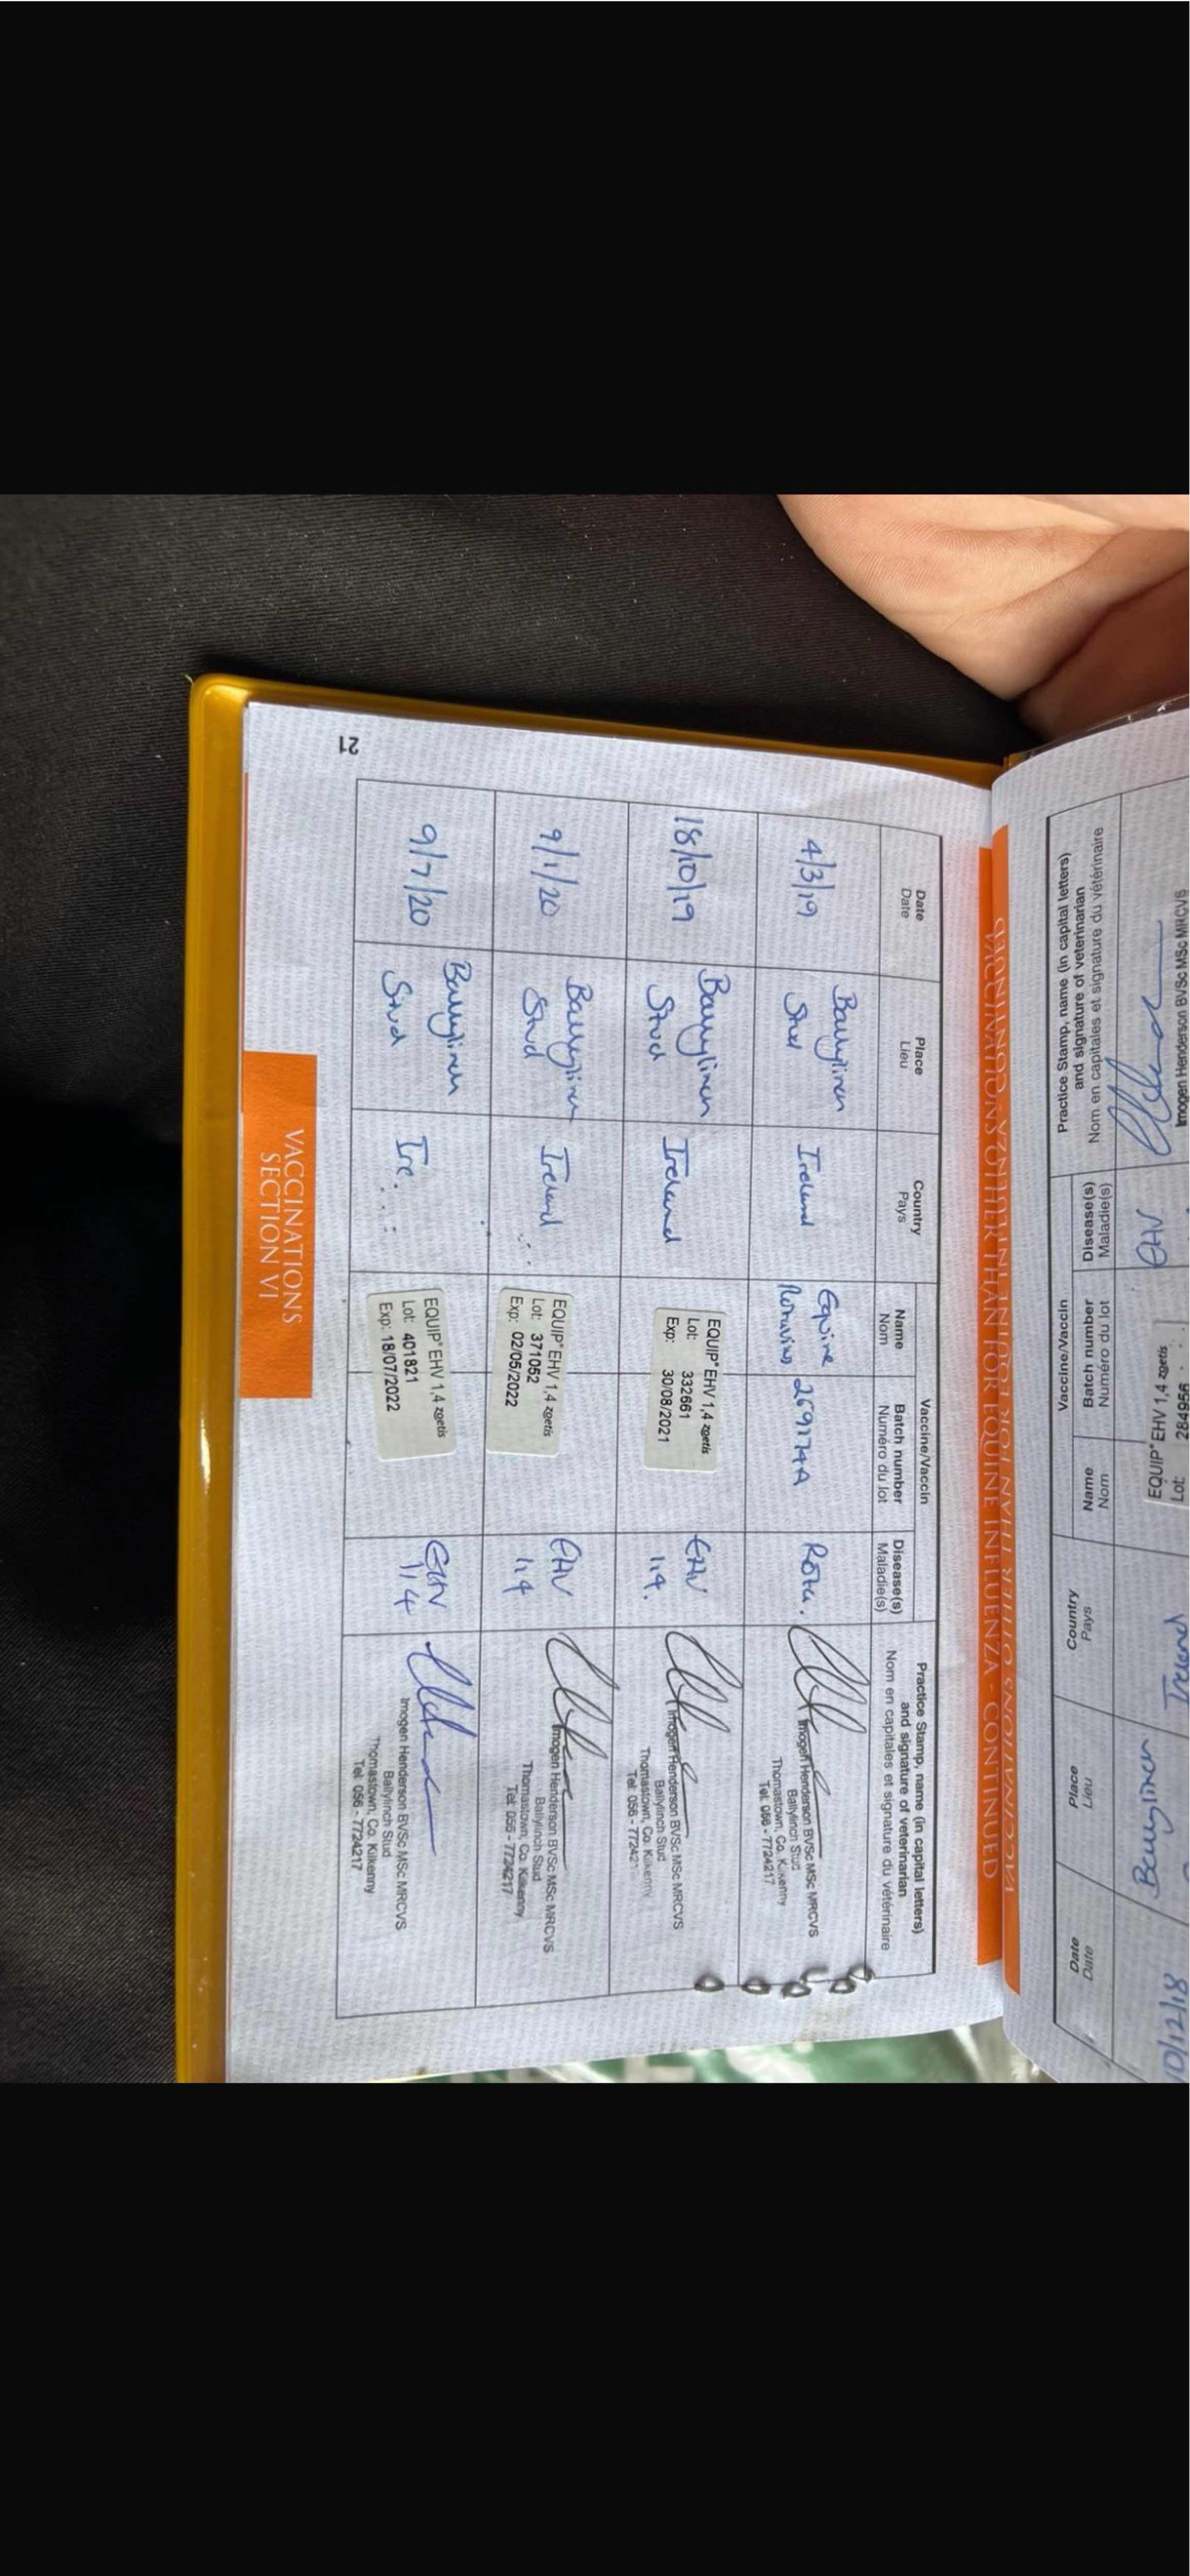 VACCINATIONS OTHER THAN FOR EQUINE INFLUENZA - CONTINUED
Date
Date
Place
Lieu
Country
Pays
Vaccine/Vaccin
Name
Nom
Batch number
Numéro du lot
Disease(s)
Maladie(s)
Practice Stamp, name (in capital letters)
and signature of veterinarian
Nom en capitales et signature du vétérinaire
4/3/19
Ballylinch
Stud
Ireland
Equine
Rotavirus
269174A
Rota.
Imogen Henderson BVSc MSc MRCVS
Ballylinch Stud
Thomastown, Co. Kilkenny
Tel: 056 - 7724217
18/10/19
Ballylinch
Stud
Ireland
EQUIP® EHV 1,4 zoetis
Lot: 332661
Exp: 30/08/2021
EHV
1,4.
Imogen Henderson BVSc MSc MRCVS
Ballylinch Stud
Thomastown, Co. Kilkenny
Tel: 056 - 77242
9/1/20
Ballylinch
Stud
Ireland
EQUIP® EHV 1,4 zoetis
Lot: 371052
Exp: 02/05/2022
EHV
1,4
Imogen Henderson BVSc MSc MRCVS
Ballylinch Stud
Thomastown, Co. Kilkenny
Tel: 056 - 7724217
9/7/20
Ballylinch
Stud
Ire.
EQUIP® EHV 1,4 zoetis
Lot: 401821
Exp: 18/07/2022
EHV
1,4
Imogen Henderson BVSc MSc MRCVS
Ballylinch Stud
Thomastown, Co. Kilkenny
Tel: 056 - 7724217
VACCINATIONS
SECTION VI
21
Date
Date
Place
Lieu
Country
Pays
Vaccine/Vaccin
Name
Nom
Batch number
Numéro du lot
Disease(s)
Maladie(s)
Practice Stamp, name (in capital letters)
and signature of veterinarian
Nom en capitales et signature du vétérinaire
10/12/18
Ballylinch
Ireland
EQUIP® EHV 1,4 zoetis
Lot: 284956
EHV
Imogen Henderson BVSc MSc MRCVS